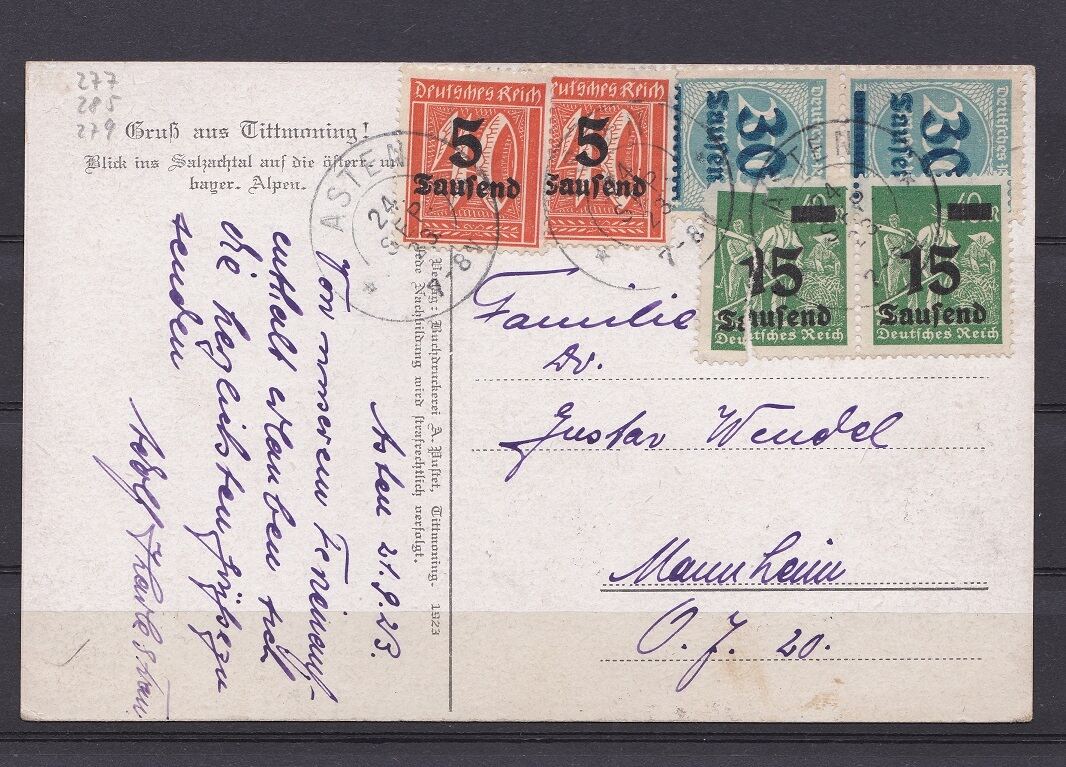 277
285
279
Gruß aus Tittmoning!
Blick ins Salzachtal auf die österr. un
bayer. Alpen.
Deutsches Reich
5
Tausend
Deutsches Reich
5
Tausend
30
Tausen
Deutsche
30
Tausen
Deutsches
40
15
Tausend
Deutsches Reich
15
Tausend
Deutsches Reich
ASTEN
24
SEP
23
7-8
ASTEN
24
SEP
23
Verlag: Buchdruckerei A. Pustet, Tittmoning 1923
Jede Nachbildung wird strafrechtlich verfolgt.
Asten 21.9.23.
Von unserem Ferienauf-
enthalt erlauben sich
die herzlichsten Grüße zu
senden
Adolf
Familie
Dr.
Gustav Wendel
Mannheim
O. 7. 20.